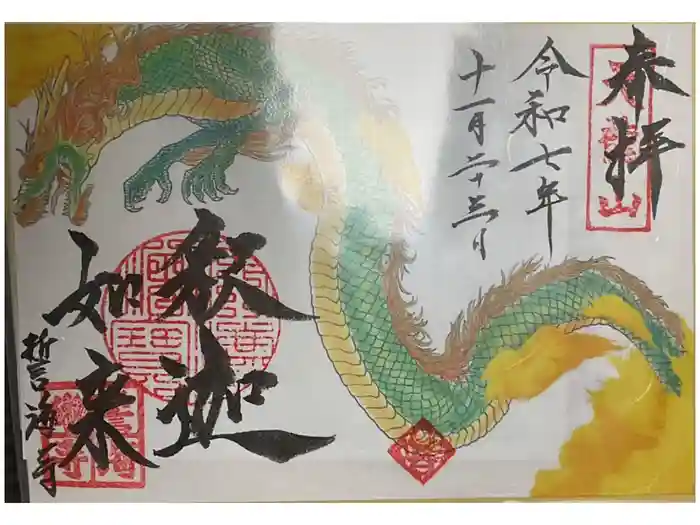 奉拝
令和七年
十一月二十三日
釈迦
如来
誓海寺